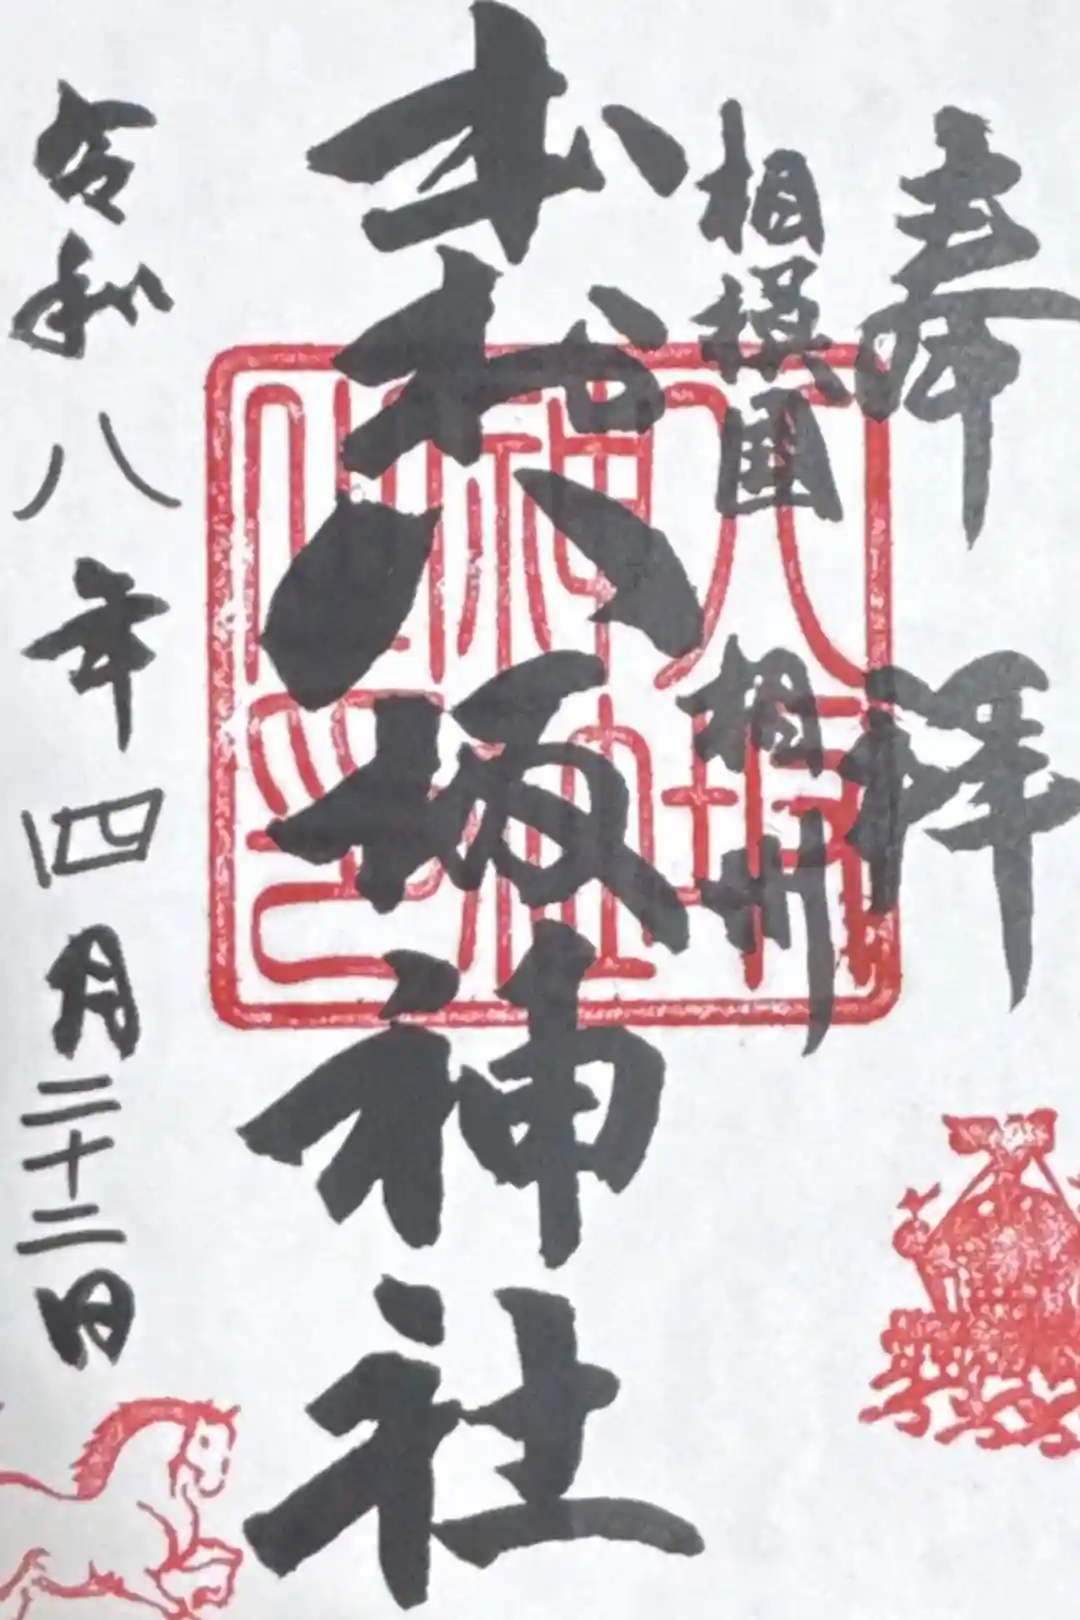 奉拝
相模国 相州
八坂神社
令和八年四月二十二日
八坂
神社